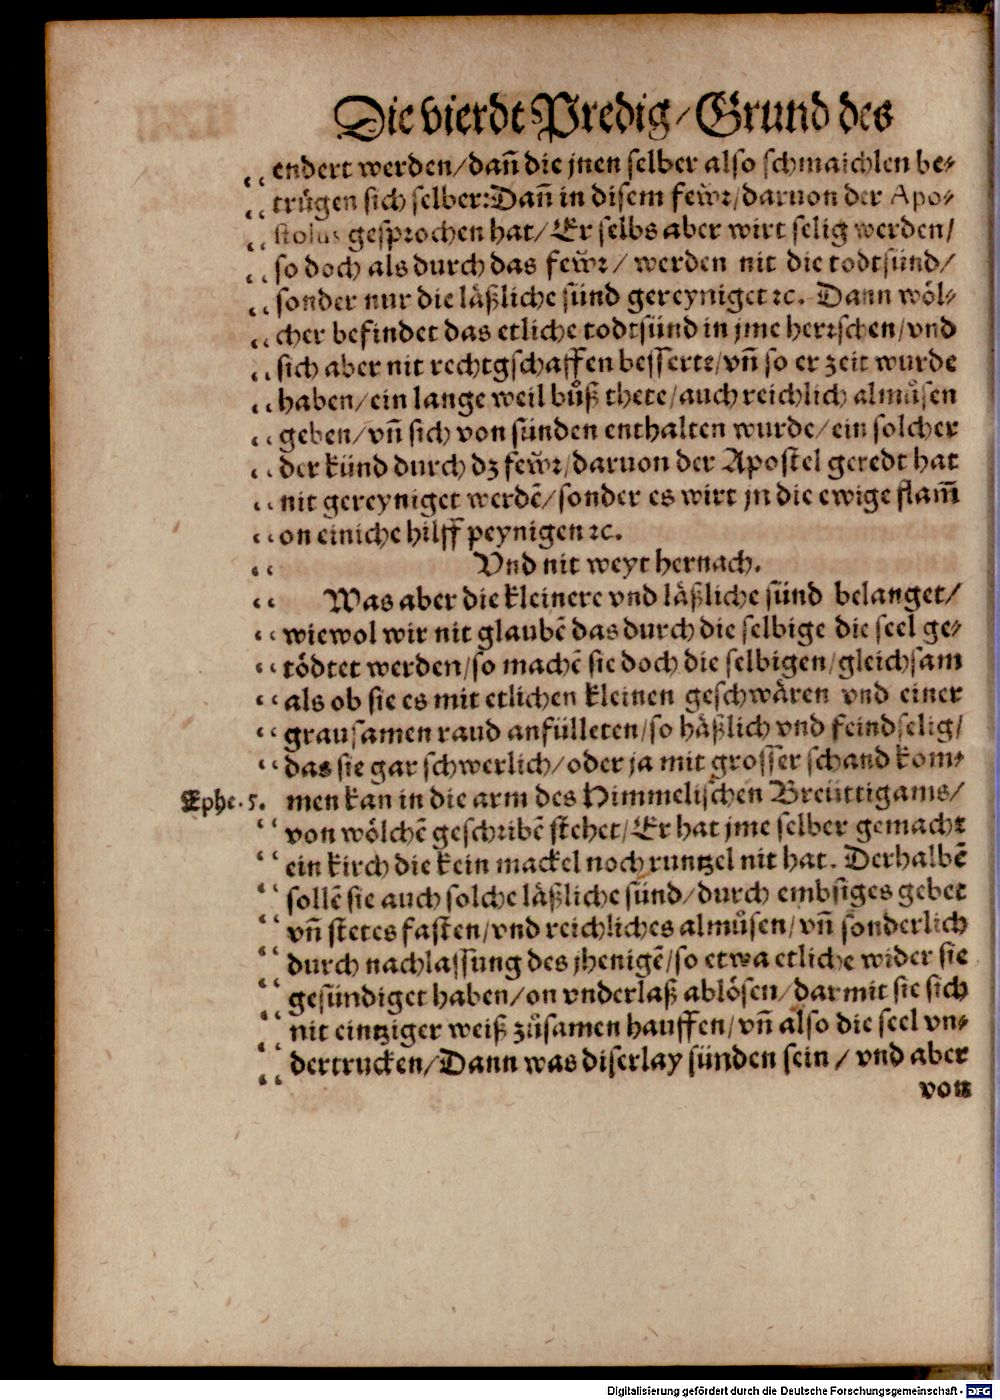 Die vierdt Predig/Grund des
endert werden/dañ die jnen selber also schmaichlen be⸗
trügen sich selber:Dañ in disem fewͤr/daruon der Apo⸗
stolus gesprochen hat/Er selbs aber wirt selig werden/
so doch als durch das fewͤr/ werden nit die todtsünd/
sonder nur die läßliche sünd gereyniget ꝛc. Dann wöl⸗
cher befindet das etliche todtsünd in jme hertschen/vnd
sich aber nit rechtgschaffen besserte/vñ so er zeit wurde
haben/ein lange weil bůß thete/auch reichlich almůsen
geben/vñ sich von sünden enthalten wurde/ein solcher
der künd durch dz fewͤr/daruon der Apostel geredt hat
nit gereyniget werdē/sonder es wirt jn die ewige flam̃
on einiche hilff peynigen ꝛc.
Vnd nit weyt hernach.
Was aber die kleinere vnd läßliche sünd belanget/
wiewol wir nit glaubē das durch die selbige die seel ge⸗
tödtet werden/so machē sie doch die selbigen/gleichsam
als ob sie es mit etlichen kleinen geschwären vnd einer
grausamen raud anfülleten/so häßlich vnd feindselig/
das sie gar schwerlich/oder ja mit grosser schand kom⸗
Ephe. 5. men kan in die arm des Himmelischen Breüttigams/
von wölchē geschribē stehet/Er hat jme selber gemacht
ein kirch die kein mackel noch runtzel nit hat. Derhalbē
sollē sie auch solche läßliche sünd/durch embsiges gebet
vñ stetes fasten/vnd reichliches almůsen/vñ sonderlich
durch nachlassung des jhenigē/so etwa etliche wider sie
gesündiget haben/on vnderlaß ablösen/darmit sie sich
nit eintziger weiß zůsamen hauffen/vñ also die seel vn⸗
dertrucken/Dann was diserlay sünden sein / vnd aber
von
Digitalisierung gefördert durch die Deutsche Forschungsgemeinschaft - DFG